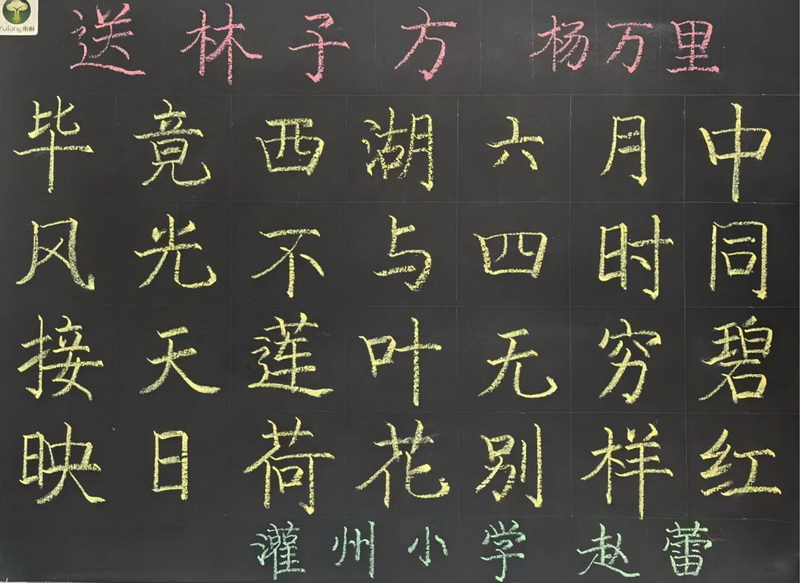 送林子方 杨万里
毕竟西湖六月中
风光不与四时同
接天莲叶无穷碧
映日荷花别样红
灌州小学 赵蕾